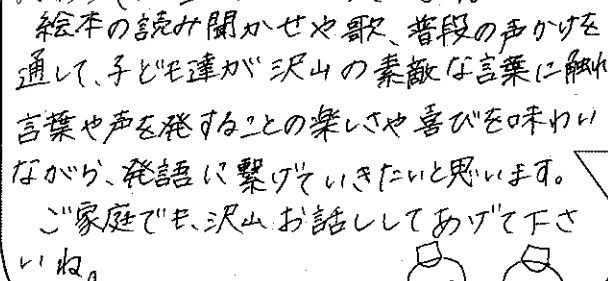 絵本の読み聞かせや歌、普段の声かけを
通して、子ども達が沢山の素敵な言葉に触れ
言葉や声を発することの楽しさや喜びを味わい
ながら、発語に繋げていきたいと思います。
ご家庭でも、沢山お話ししてあげて下さ
いね。